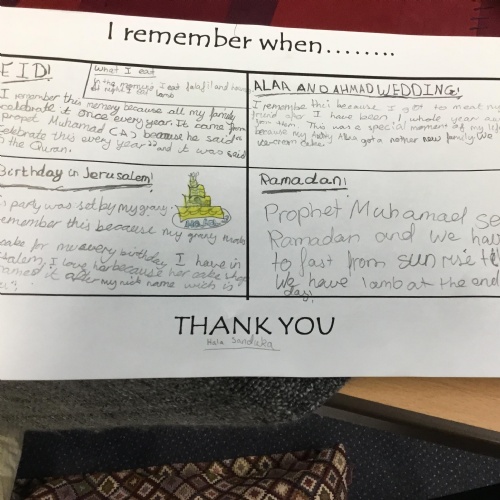 I remember when........
EID!
what I eat
in the morning I eat falafil and
at night I eat lamb
I remember this memory because all my family
celebrate it once every year. It came from
propet Muhamad (A) because he said
celebrate this every year" and it was said
the Quran.
ALAA AND AHMAD WEDDING!
I remember this because I got to meat my
friend after I have been 1 whole year away
from them. This was a special moment of my life
because my got a nother new family. We
cakes
Birthday in Jerusalem!
party was set by my granny.
remember this because my granny makes
cake for me every birthday I have in
salem, I love her because her cake shop
named it after my nick name wich is
Ramadan!
Prophet Muhamad se
Ramadan and we ha
to fast from sun rise t
We have lamb at the end
day!
THANK YOU
Hala Sanduka